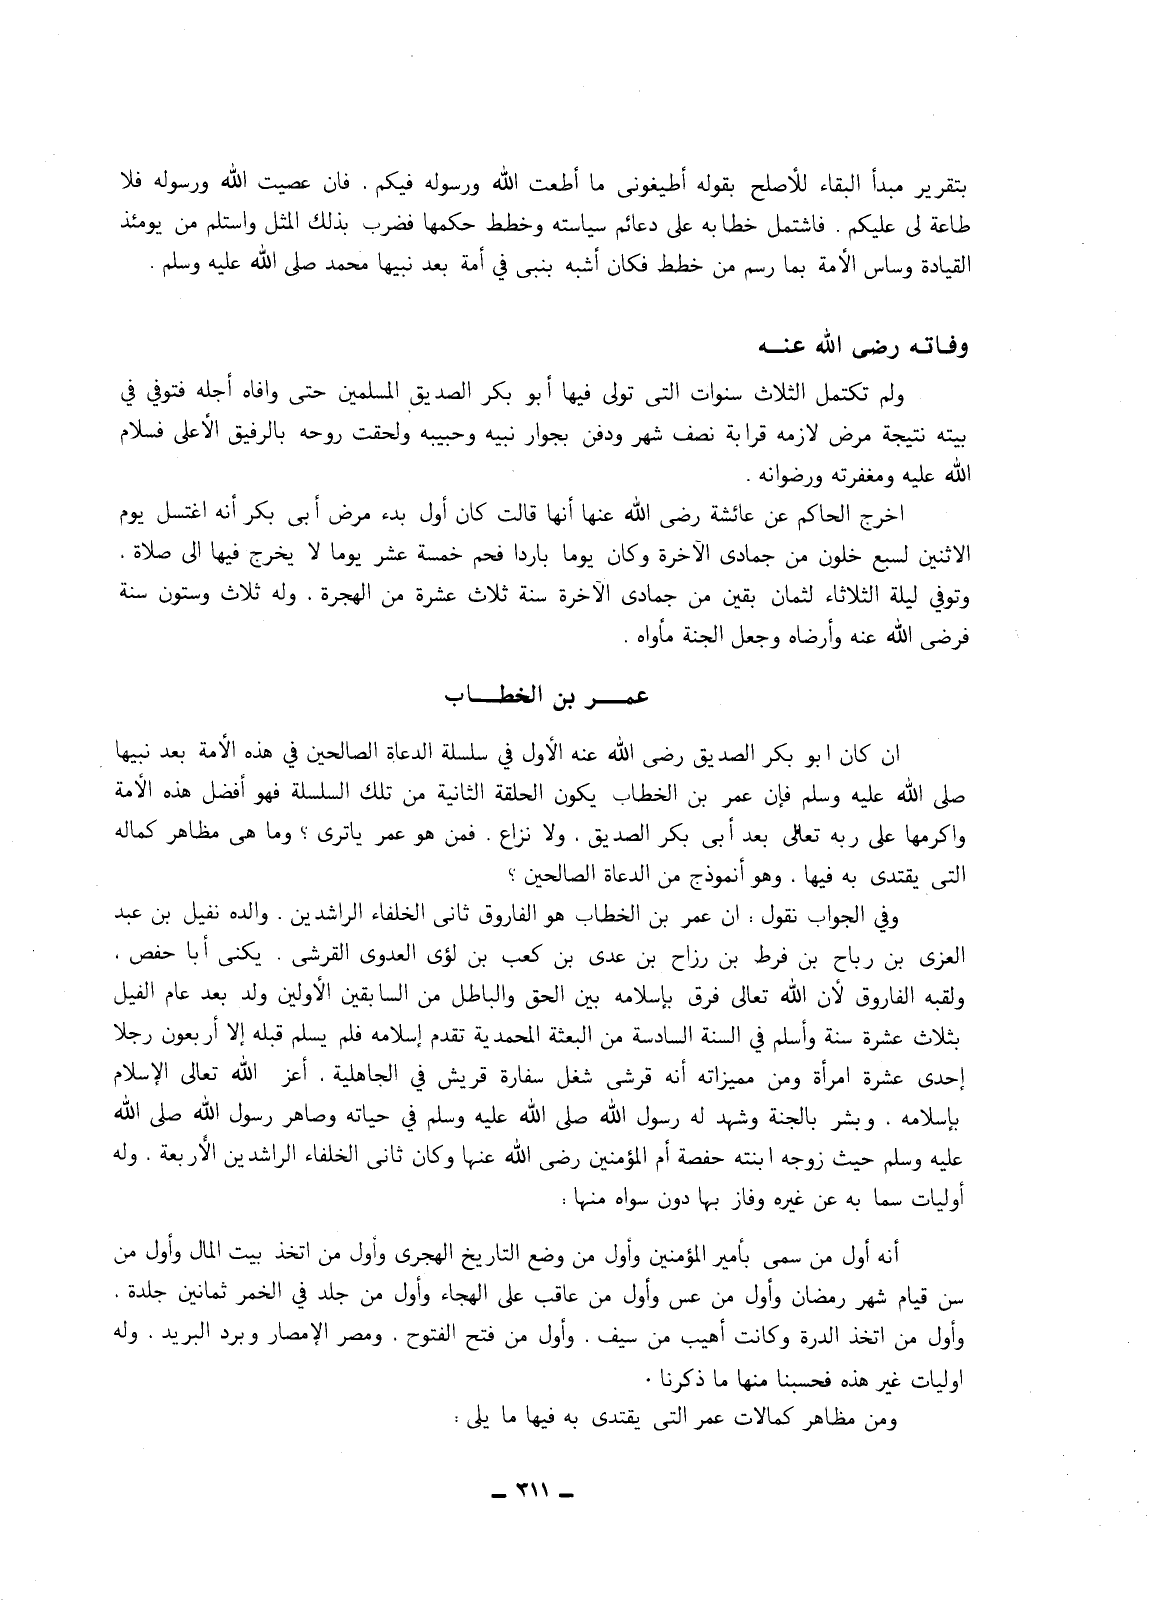 بتقرير مبدأ البقاء للأصلح بقوله أطيغونى ما أطعت الله ورسوله فيكم . فان عصيت الله ورسوله فلا
طاعة لى عليكم . فاشتمل خطابه على دعائم سياسته وخطط حكمها فضرب بذلك المثل واستلم من يومئذ
القيادة وساس الأمة بما رسم من خطط فكان أشبه بنبى في أمة بعد نبيها محمد صلى الله عليه وسلم .
وفاته رضى الله عنه
ولم تكتمل الثلاث سنوات التى تولى فيها أبو بكر الصديق المسلمين حتى وافاه أجله فتوفي في
بيته نتيجة مرض لازمه قرابة نصف شهر ودفن بجوار نبيه وحبيبه ولحقت روحه بالرفيق الأعلى فسلام
الله عليه ومغفرته ورضوانه .
اخرج الحاكم عن عائشة رضى الله عنها أنها قالت كان أول بدء مرض أبى بكر أنه اغتسل يوم
الاثنين لسبع خلون من جمادى الآخرة وكان يوما باردا فحم خمسة عشر يوما لا يخرج فيها الى صلاة .
وتوفي ليلة الثلاثاء لثمان بقين من جمادى الآخرة سنة ثلاث عشرة من الهجرة . وله ثلاث وستون سنة
فرضى الله عنه وأرضاه وجعل الجنة مأواه .
عمر بن الخطاب
ان كان ابو بكر الصديق رضى الله عنه الأول في سلسلة الدعاة الصالحين في هذه الأمة بعد نبيها
صلى الله عليه وسلم فإن عمر بن الخطاب يكون الحلقة الثانية من تلك السلسلة فهو أفضل هذه الأمة
واكرمها على ربه تعالى بعد أبى بكر الصديق . ولا نزاع . فمن هو عمر ياترى ؟ وما هى مظاهر كماله
التى يقتدى به فيها . وهو أنموذج من الدعاة الصالحين ؟
وفي الجواب نقول : ان عمر بن الخطاب هو الفاروق ثانى الخلفاء الراشدين . والده نفيل بن عبد
العزى بن رباح بن فرط بن رزاح بن عدى بن كعب بن لؤى العدوى القرشى . يكنى أبا حفص .
ولقبه الفاروق لأن الله تعالى فرق بإسلامه بين الحق والباطل من السابقين الأولين ولد بعد عام الفيل
بثلاث عشرة سنة وأسلم في السنة السادسة من البعثة المحمدية تقدم إسلامه فلم يسلم قبله إلا أربعون رجلا
إحدى عشرة امرأة ومن مميزاته أنه قرشى شغل سفارة قريش في الجاهلية . أعز الله تعالى الإسلام
بإسلامه . وبشر بالجنة وشهد له رسول الله صلى الله عليه وسلم في حياته وصاهر رسول الله صلى الله
عليه وسلم حيث زوجه ابنته حفصة أم المؤمنين رضى الله عنها وكان ثانى الخلفاء الراشدين الأربعة . وله
أوليات سما به عن غيره وفاز بها دون سواه منها :
أنه أول من سمى بأمير المؤمنين وأول من وضع التاريخ الهجرى وأول من اتخذ بيت المال وأول من
سن قيام شهر رمضان وأول من عس وأول من عاقب على الهجاء وأول من جلد في الخمر ثمانين جلدة .
وأول من اتخذ الدرة وكانت أهيب من سيف . وأول من فتح الفتوح . ومصر الإمصار وبرد البريد . وله
اوليات غير هذه فحسبنا منها ما ذكرنا .
ومن مظاهر كمالات عمر التى يقتدى به فيها ما يلى :
– ٣١١ –